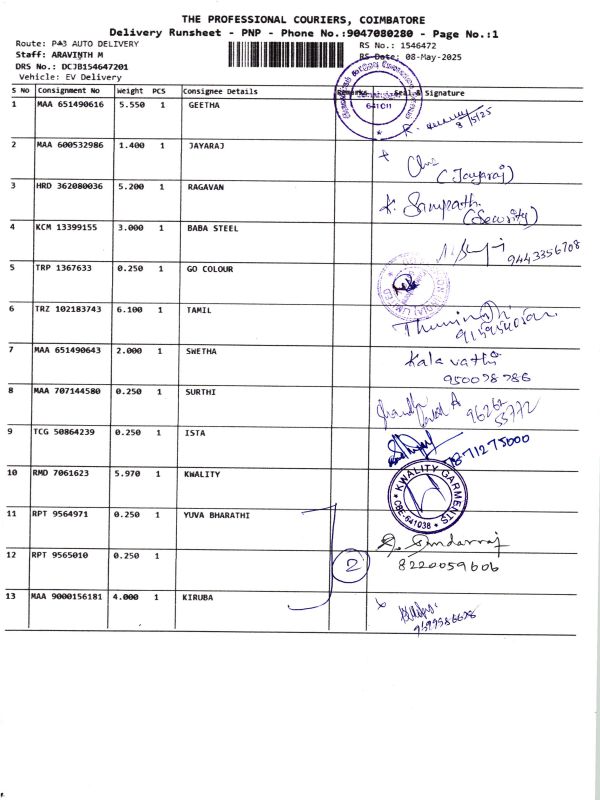 THE PROFESSIONAL COURIERS, COIMBATORE
Delivery Runsheet - PNP - Phone No.:9047080280 - Page No.:1
Route: P43 AUTO DELIVERY
Staff: ARAVINTH M
DRS No.: DCJB154647201
Vehicle: EV Delivery
RS No.: 1546472
RS Date: 08-May-2025
S No Consignment No Weight PCS Consignee Details Remarks Seal & Signature
1 MAA 651490616 5.550 1 GEETHA
641 011
8/5/25
2 MAA 600532986 1.400 1 JAYARAJ
(Jayaraj)
3 HRD 362080036 5.200 1 RAGAVAN K. Sampath.
(Security)
4 KCM 13399155 3.000 1 BABA STEEL
9443356708
5 TRP 1367633 0.250 1 GO COLOUR
LIMITED
6 TRZ 102183743 6.100 1 TAMIL
7 MAA 651490643 2.000 1 SWETHA Kalavathi
950078786
8 MAA 707144580 0.250 1 SURTHI
96262
55772
9 TCG 50864239 0.250 1 ISTA
871275000
10 RMD 7061623 5.970 1 KWALITY
KWALITY GARMENTS
CBE-641038
11 RPT 9564971 0.250 1 YUVA BHARATHI
12 RPT 9565010 0.250 1 2
8220059606
13 MAA 9000156181 4.000 1 KIRUBA